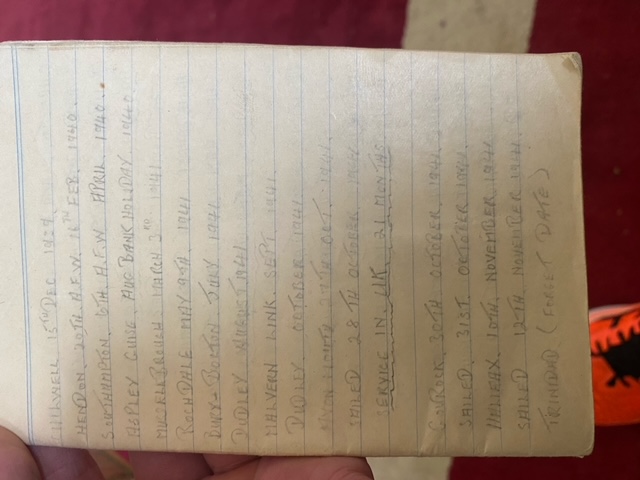 15TH DEC 1939
HENDON, 20TH N.F.W. 16TH FEB. 1940.
SOUTHAMPTON, 6TH N.F.W. APRIL 1940.
ASPLEY GUISE, AUG BANK HOLIDAY 1940
MARCH 3RD 1941
ROCHDALE MAY 9TH, 1941
BURY - BOLTON JULY 1941
DUDLEY AUGUST 1941
MALVERN LINK, SEPT 1941
DUDLEY, OCTOBER 1941
27TH OCT. 1941
SAILED 28TH OCTOBER 1941
SERVICE IN U.K. 21 MONTHS
GOUROCK, 30TH OCTOBER, 1941
SAILED, 31ST OCTOBER 1941
HALIFAX, 10TH, NOVEMBER, 1941
SAILED 12TH NOVEMBER 1941.
TRINIDAD (FORGET DATE)